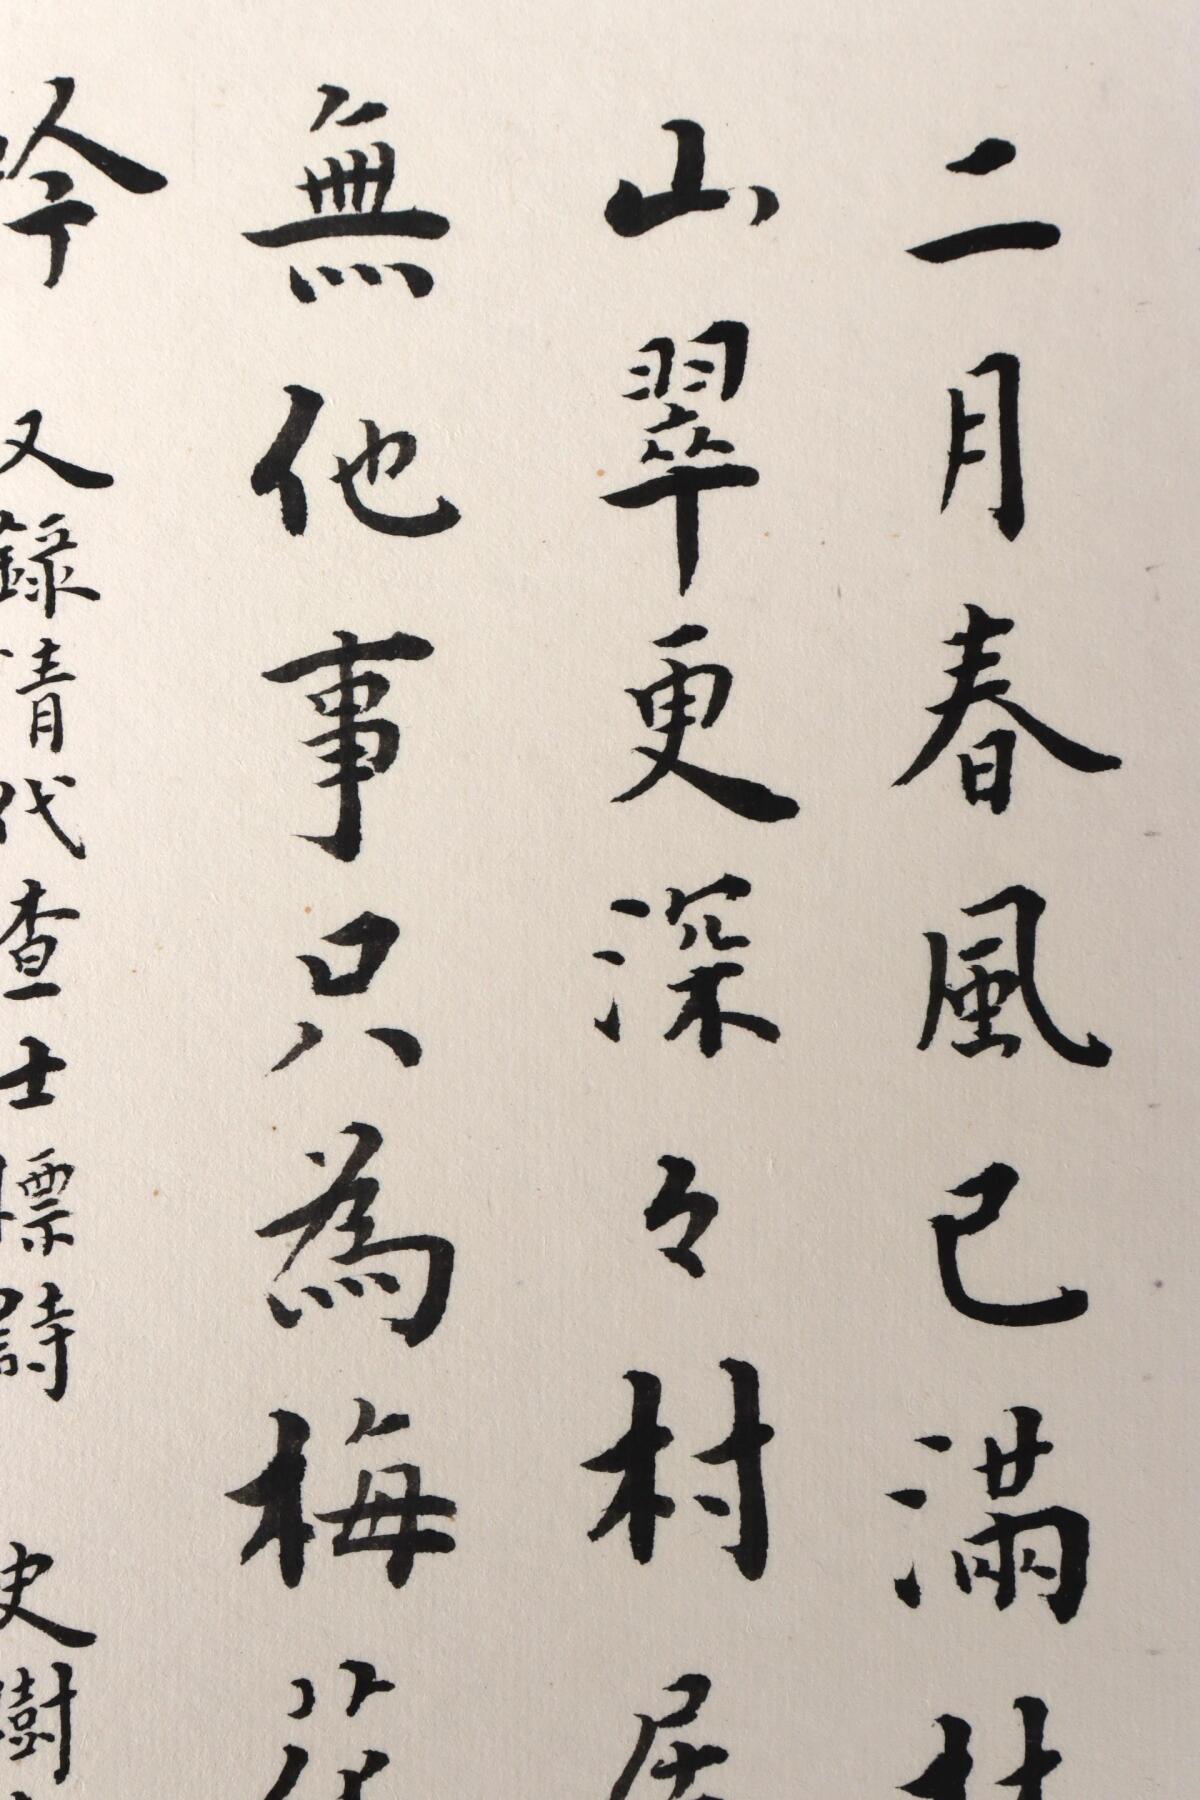 二月春風已滿林
山翠更深々村居
無他事只為梅花
吟 又錄清代查士標詩 史樹